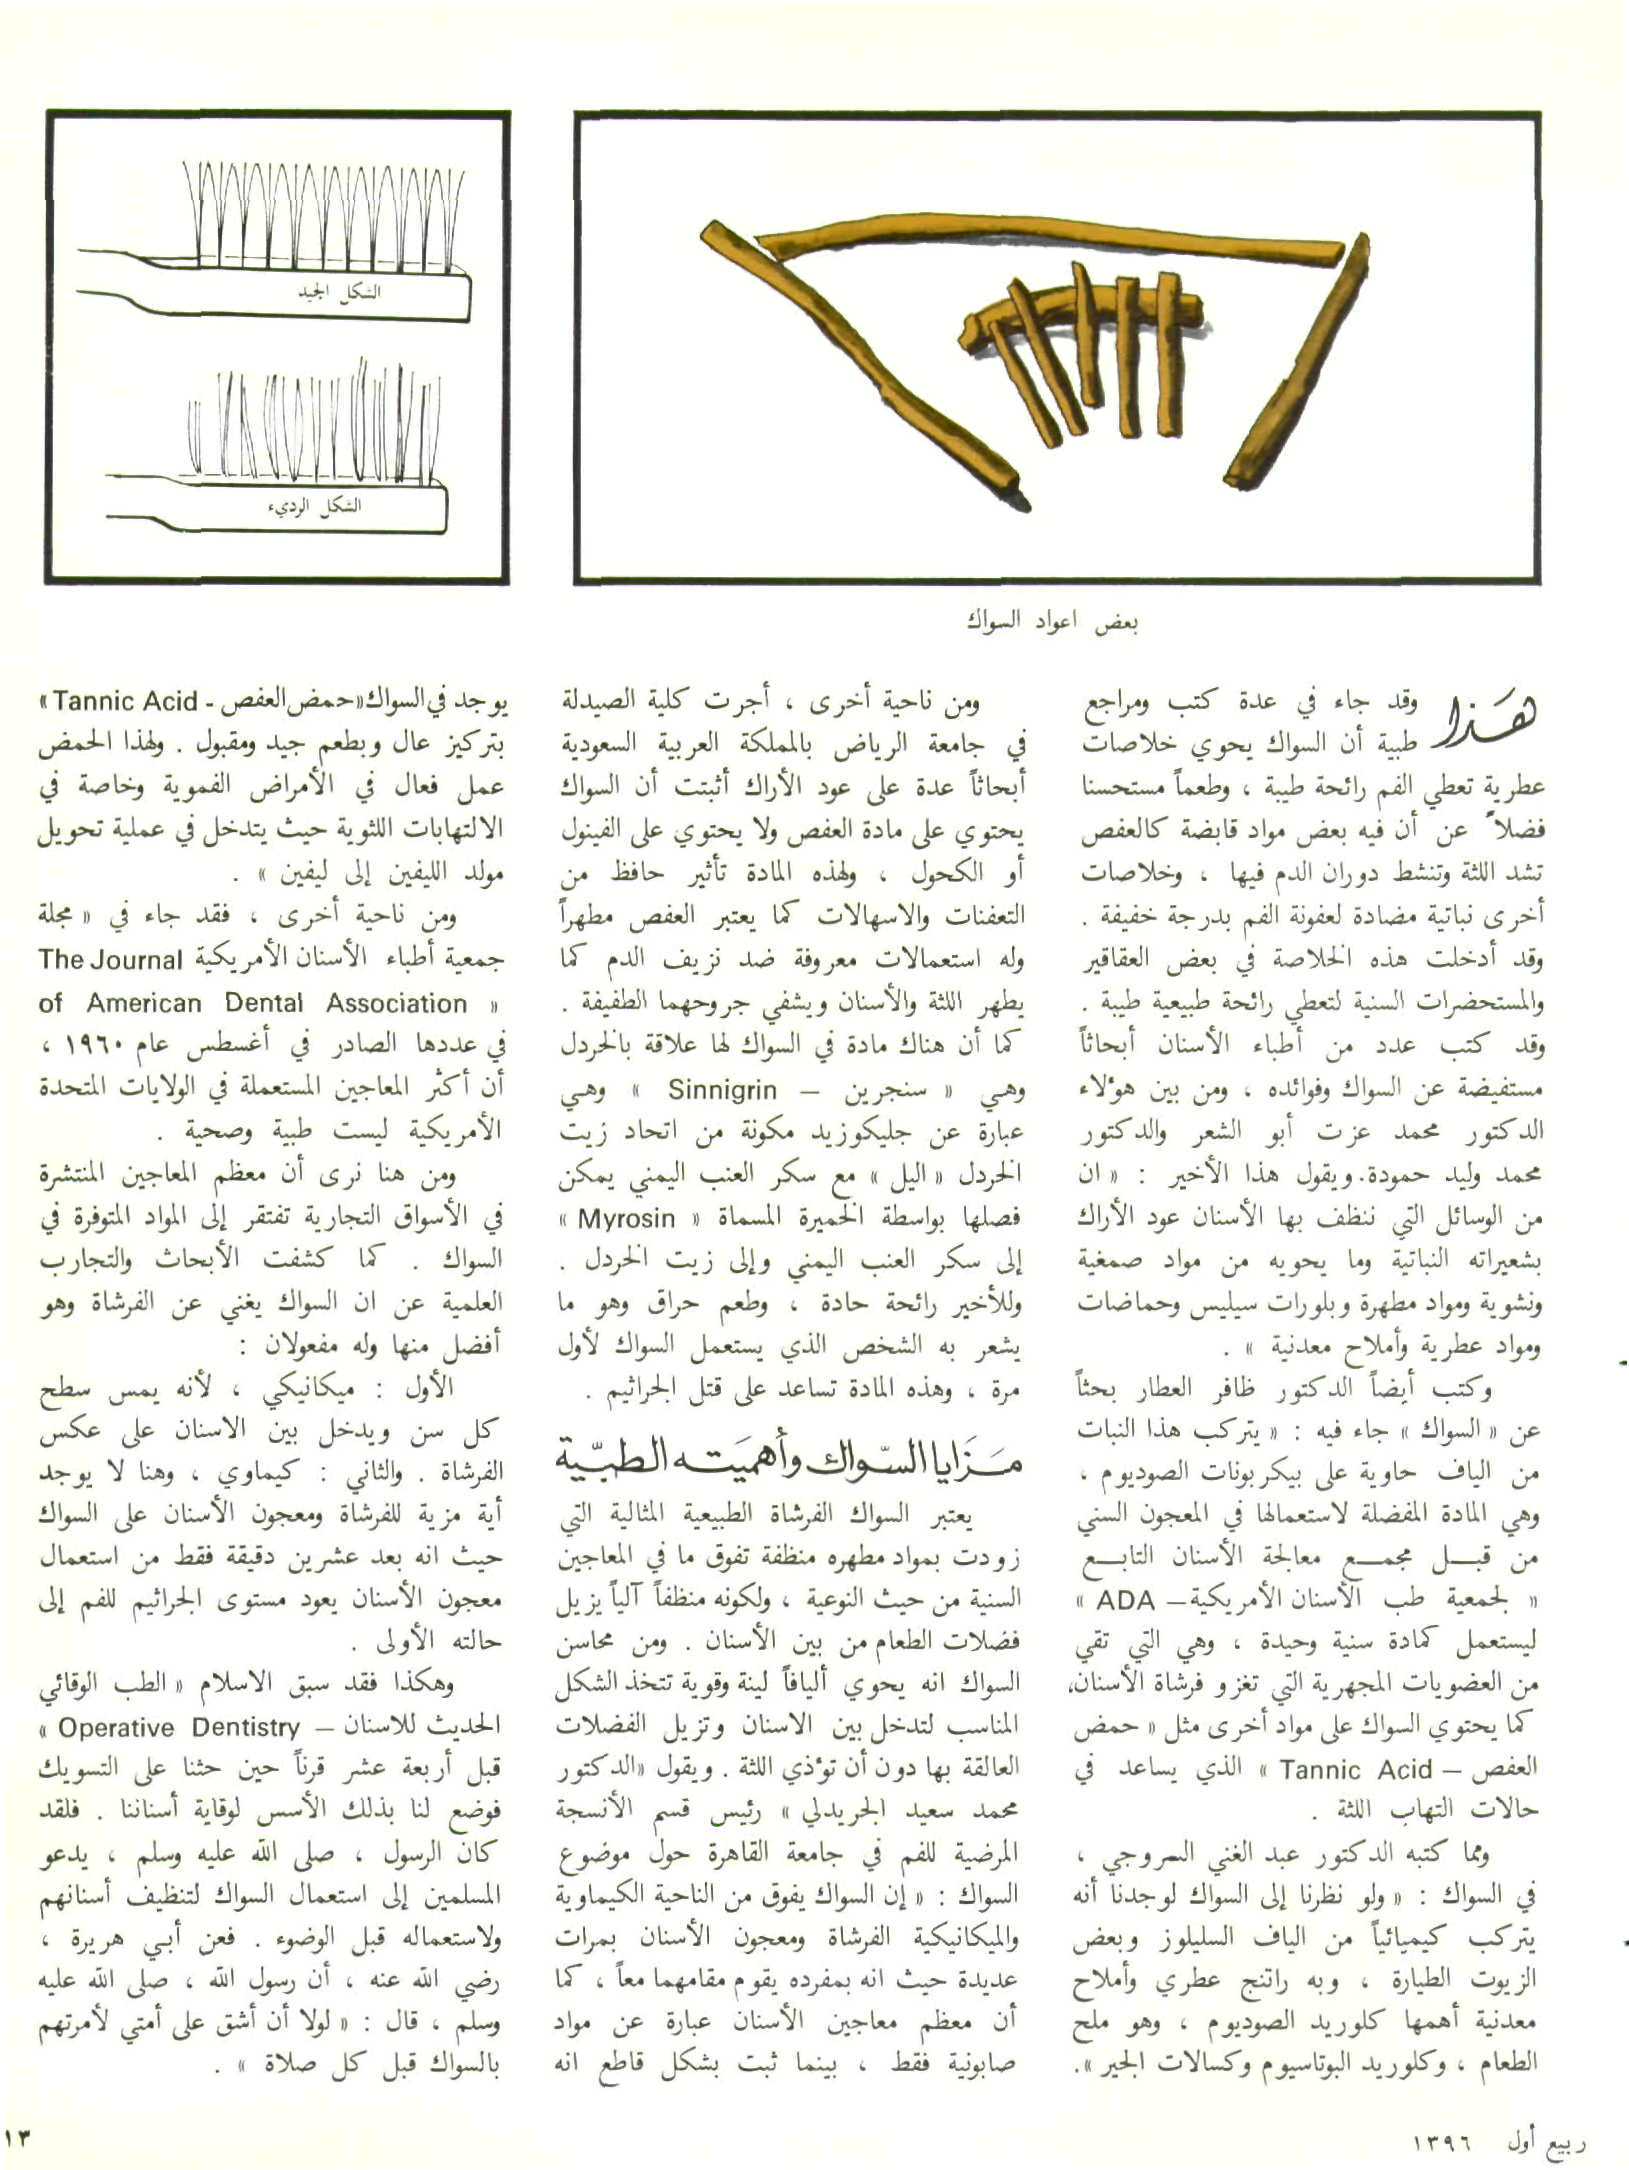 الشكل الجيد
الشكل الرديء
بعض اعواد السواك
هَذا وقد جاء في عدة كتب ومراجع
طبية أن السواك يحوي خلاصات
عطرية تعطي الفم رائحة طيبة ، وطعماً مستحسنا
فضلاً عن أن فيه بعض مواد قابضة كالعفص
تشد اللثة وتنشط دوران الدم فيها ، وخلاصات
أخرى نباتية مضادة لعفونة الفم بدرجة خفيفة .
وقد أدخلت هذه الخلاصة في بعض العقاقير
والمستحضرات السنية لتعطي رائحة طبيعية طيبة .
وقد كتب عدد من أطباء الأسنان أبحاثاً
مستفيضة عن السواك وفوائده ، ومن بين هؤلاء
الدكتور محمد عزت أبو الشعر والدكتور
محمد وليد حمودة. ويقول هذا الأخير : « ان
من الوسائل التي ننظف بها الأسنان عود الأراك
بشعيراته النباتية وما يحويه من مواد صمغية
ونشوية ومواد مطهرة وبلورات سيليس وحماضات
ومواد عطرية وأملاح معدنية » .
وكتب أيضاً الدكتور ظافر العطار بحثاً
عن « السواك » جاء فيه : « يتركب هذا النبات
من الياف حاوية على بيكربونات الصوديوم ،
وهي المادة المفضلة لاستعمالها في المعجون السني
من قبل مجمع معالجة الأسنان التابع
« لجمعية طب الأسنان الأمريكية – ADA »
ليستعمل كمادة سنية وحيدة ، وهي التي تقي
من العضويات المجهرية التي تغزو فرشاة الأسنان،
كما يحتوي السواك على مواد أخرى مثل « حمض
العفص – Tannic Acid » الذي يساعد في
حالات التهاب اللثة .
ومما كتبه الدكتور عبد الغني السروجي ،
في السواك : « ولو نظرنا إلى السواك لوجدنا أنه
يتركب كيميائياً من الياف السليلوز وبعض
الزيوت الطيارة ، وبه راتنج عطري وأملاح
معدنية أهمها كلوريد الصوديوم ، وهو ملح
الطعام ، وكلوريد البوتاسيوم وكسالات الجير ».
ومن ناحية أخرى ، أجرت كلية الصيدلة
في جامعة الرياض بالمملكة العربية السعودية
أبحاثاً عدة على عود الأراك أثبتت أن السواك
يحتوي على مادة العفص ولا يحتوي على الفينول
أو الكحول ، ولهذه المادة تأثير حافظ من
التعفنات والاسهالات كما يعتبر العفص مطهراً
وله استعمالات معروفة ضد نزيف الدم كما
يطهر اللثة والأسنان ويشفي جروحهما الطفيفة .
كما أن هناك مادة في السواك لها علاقة بالخردل
وهي « سنجرين – Sinnigrin » وهي
عبارة عن جليكوزيد مكونة من اتحاد زيت
الخردل « اليل » مع سكر العنب اليمني يمكن
فصلها بواسطة الخميرة المسماة « Myrosin »
إلى سكر العنب اليمني وإلى زيت الخردل .
وللأخير رائحة حادة ، وطعم حراق وهو ما
يشعر به الشخص الذي يستعمل السواك لأول
مرة ، وهذه المادة تساعد على قتل الجراثيم .
مَزَايا السّواك وأهميَته الطبّية
يعتبر السواك الفرشاة الطبيعية المثالية التي
زودت بمواد مطهره منظفة تفوق ما في المعاجين
السنية من حيث النوعية ، ولكونه منظفاً آلياً يزيل
فضلات الطعام من بين الأسنان . ومن محاسن
السواك انه يحوي أليافاً لينة وقوية تتخذ الشكل
المناسب لتدخل بين الاسنان وتزيل الفضلات
العالقة بها دون أن تؤذي اللثة . ويقول «الدكتور
محمد سعيد الجريدلي » رئيس قسم الأنسجة
المرضية للفم في جامعة القاهرة حول موضوع
السواك : « إن السواك يفوق من الناحية الكيماوية
والميكانيكية الفرشاة ومعجون الأسنان بمرات
عديدة حيث انه بمفرده يقوم مقامهما معاً ، كما
أن معظم معاجين الأسنان عبارة عن مواد
صابونية فقط ، بينما ثبت بشكل قاطع انه
يوجد في السواك«حمض العفص - Tannic Acid »
بتركيز عال وبطعم جيد ومقبول . ولهذا الحمض
عمل فعال في الأمراض الفموية وخاصة في
الالتهابات اللثوية حيث يتدخل في عملية تحويل
مولد الليفين إلى ليفين » .
ومن ناحية أخرى ، فقد جاء في « مجلة
جمعية أطباء الأسنان الأمريكية The Journal
of American Dental Association »
في عددها الصادر في أغسطس عام ١٩٦٠ ،
أن أكثر المعاجين المستعملة في الولايات المتحدة
الأمريكية ليست طبية وصحية .
ومن هنا نرى أن معظم المعاجين المنتشرة
في الأسواق التجارية تفتقر إلى المواد المتوفرة في
السواك . كما كشفت الأبحاث والتجارب
العلمية عن ان السواك يغني عن الفرشاة وهو
أفضل منها وله مفعولان :
الأول : ميكانيكي ، لأنه يمس سطح
كل سن ويدخل بين الاسنان على عكس
الفرشاة . والثاني : كيماوي ، وهنا لا يوجد
أية مزية للفرشاة ومعجون الأسنان على السواك
حيث انه بعد عشرين دقيقة فقط من استعمال
معجون الأسنان يعود مستوى الجراثيم للفم إلى
حالته الأولى .
وهكذا فقد سبق الاسلام « الطب الوقائي
الحديث للاسنان – Operative Dentistry »
قبل أربعة عشر قرناً حين حثنا على التسويك
فوضع لنا بذلك الأسس لوقاية أسناننا . فلقد
كان الرسول ، صلى الله عليه وسلم ، يدعو
المسلمين إلى استعمال السواك لتنظيف أسنانهم
ولاستعماله قبل الوضوء . فعن أبي هريرة ،
رضي الله عنه ، أن رسول الله ، صلى الله عليه
وسلم ، قال : « لولا أن أشق على أمتي لأمرتهم
بالسواك قبل كل صلاة » .
ربيع أول ١٣٩٦
١٣